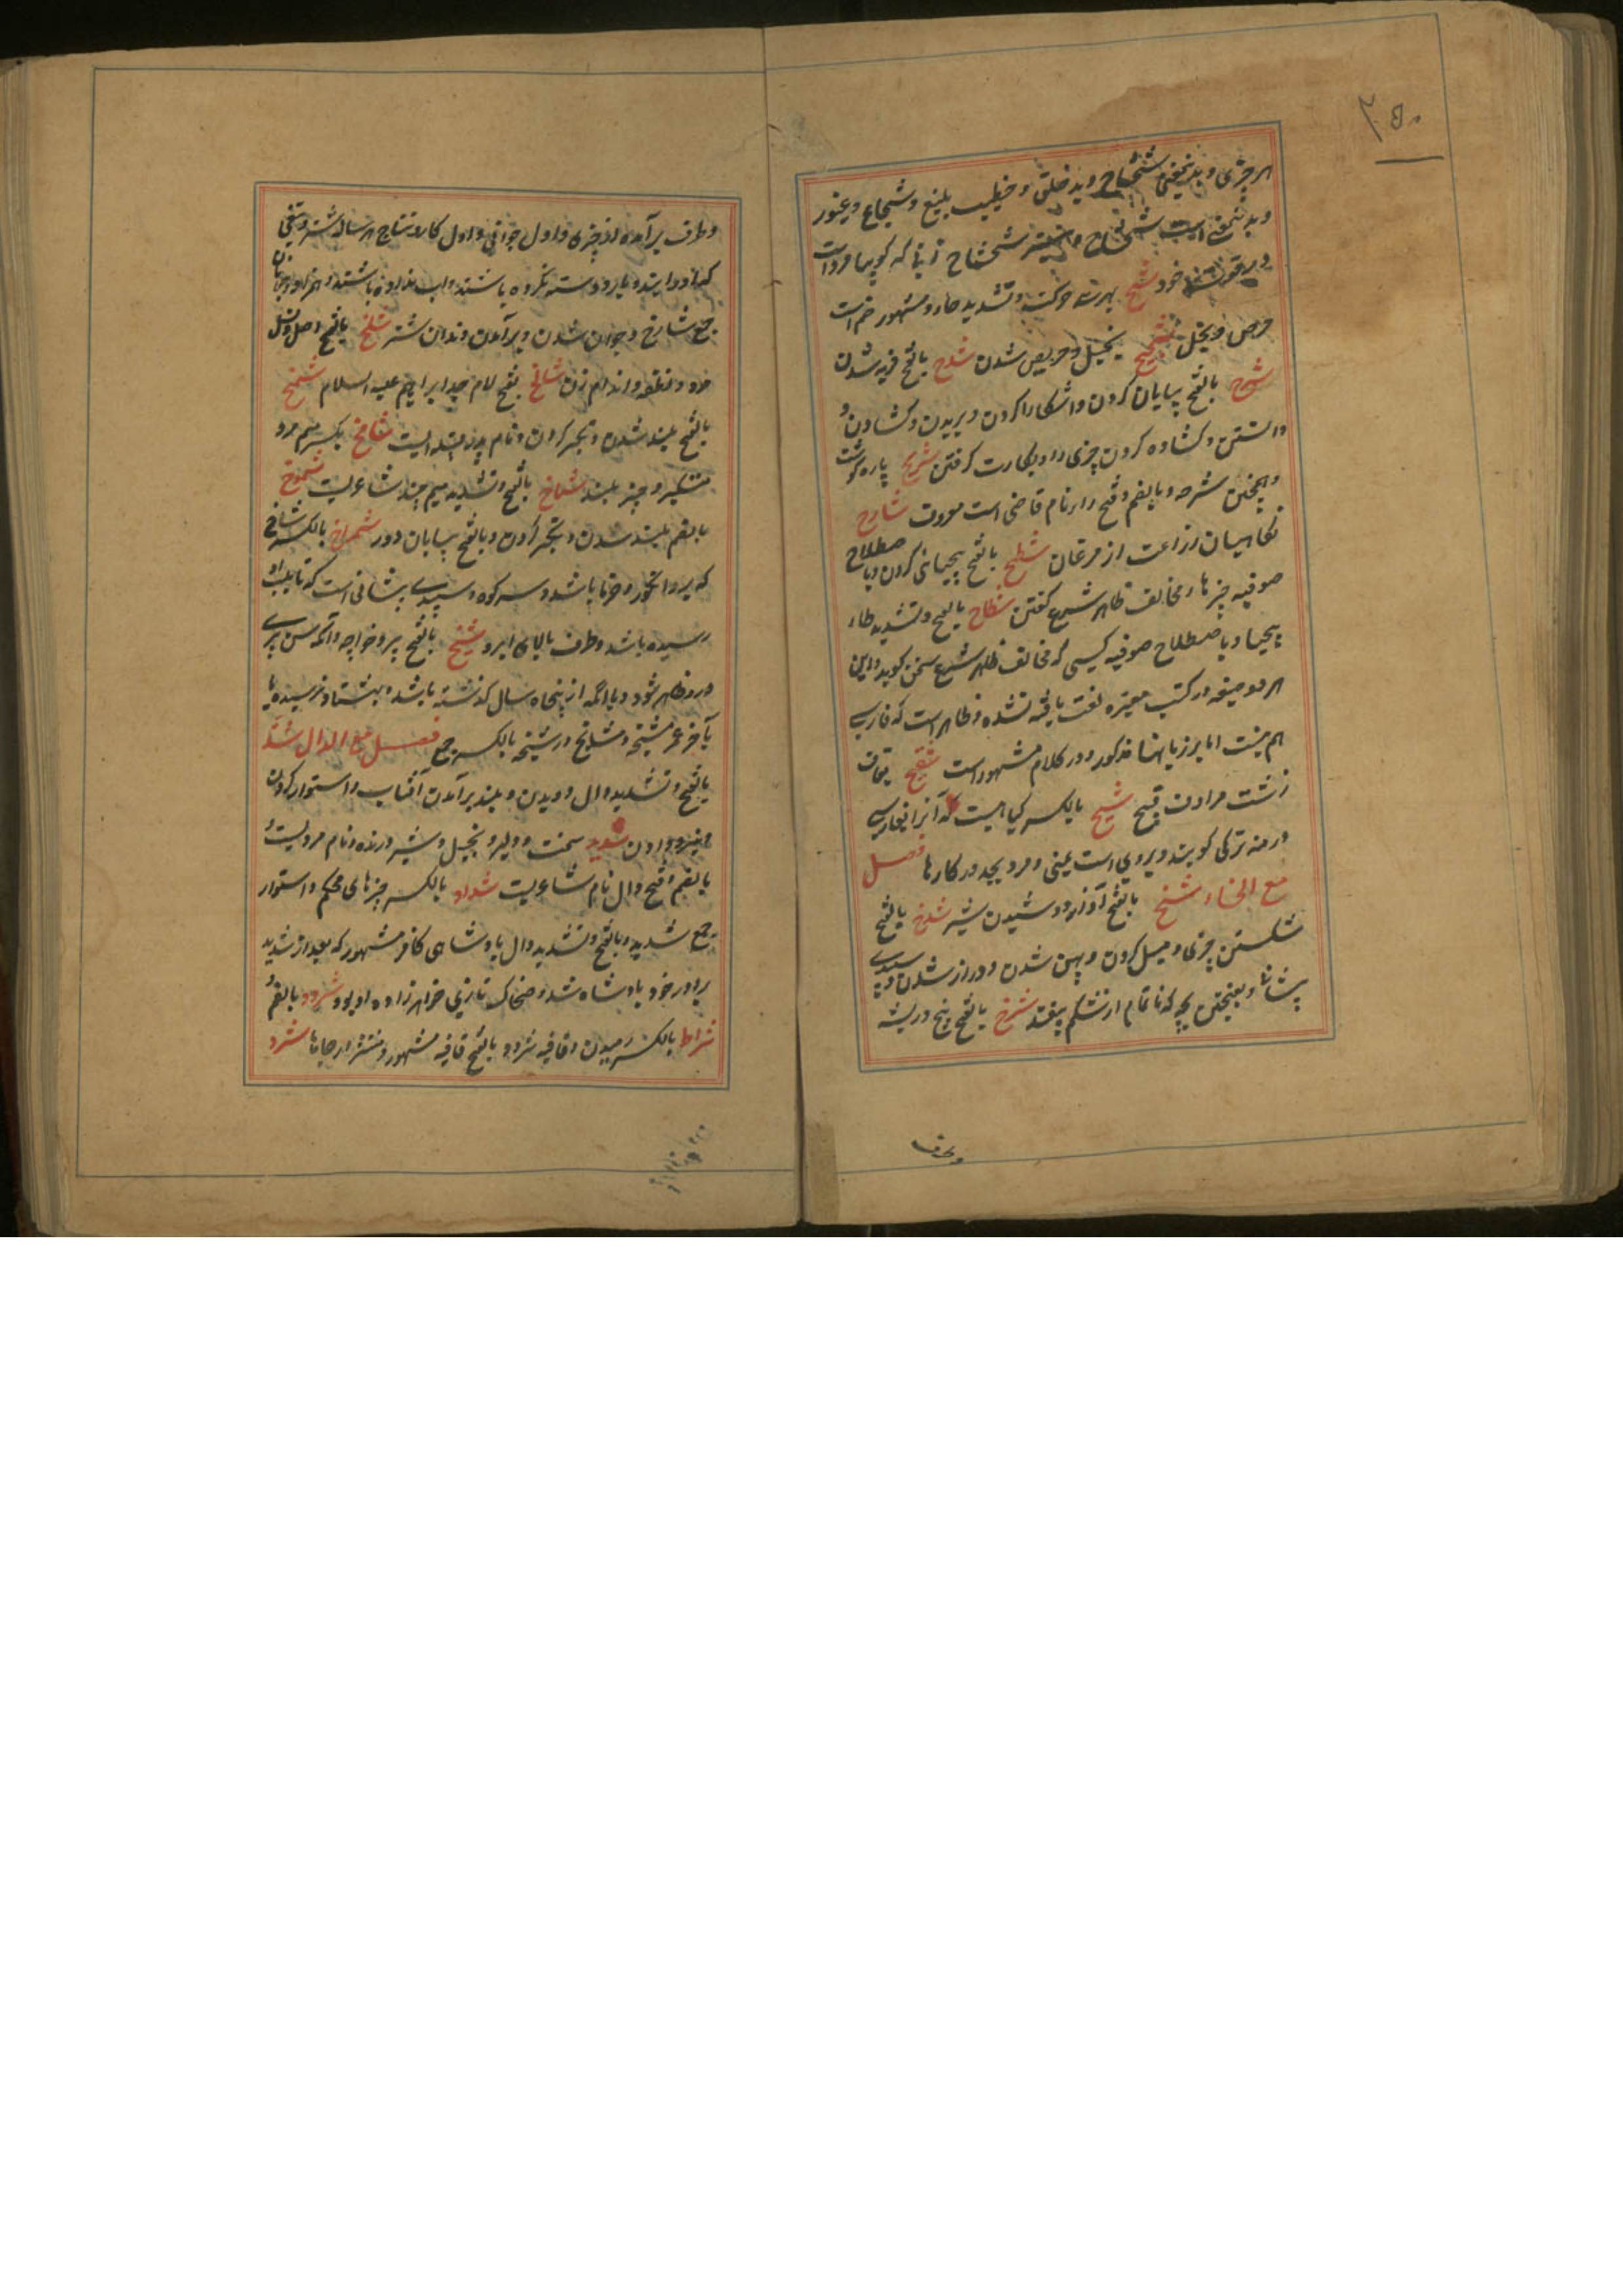 ۲۵۰
هر چیزی و بدینمعنی شحشاح و بد خلق و خطیب بلیغ و شجاع و غیور
و بدینمعنی است شحشاح زنی که گویا مرد است
در قوت خود شح بهر سه حرکت و تشدید حاء و مشهور ضم است
حرص و بخل شحیح بخیل و حریص شدن شدح بالفتح فربه شدن
شرح بالفتح بپایان کردن و آشکارا کردن و بریدن و کشادن و
دانستن و کشاده کردن چیزی را و بکارت گرفتن شریح پاره گوشت
و همچنین شرحه و بالضم و فتح راء نام قاضی است معروف شارح
نگاهبان زراعت از مرغان شطح بالفتح بیحیائی کردن و باصطلاح
صوفیه چیزها مخالف ظاهر شرع گفتن شطاح بالفتح و تشدید طاء
بیحیا و باصطلاح صوفیه کسی که مخالف ظاهر شرع سخن گوید و این
هر دو صیغه در کتب معتبره لغت یافته نشده و ظاهر است که فارسی
هم نیست اما بر زبانها مذکور و در کلام مشهور است شقیح بقاف
زشت مرادف قبیح شیح بالکسر گیاهیست که آنرا بفارسی
درمنه ترکی گویند و بردی است یمنی و مرد بجد در کارها فصل
مع الخاء شخخ بالفتح آواز دوشیدن شیر شدخ بالفتح
شکستن چیزی و میل کردن و پهن شدن و دراز شدن سپیدی
پیشانی و بفتحتین بچه که ناتمام از شکم بیفتد شرخ بالفتح بیخ و ریشه
وطرف
و طرف برآمده از چیزی و اول جوانی و اول کار و نتاج هر ساله شتر و تیغی
که او را آب و یا رو دسته نکرده باشند و آب نداده باشند و همزاد و جوانان
جمع شارخ و جوان شدن و برآمدن دندان شتر شلخ بالفتح اصل و نسل
مرد و نطفه و اندام زن شالخ بفتح لام جد ابراهیم علیه السلام شمخ
بالفتح بلند شدن و تکبر کردن و نام پدر قبیله ایست شامخ بکسر میم مرد
متکبر و چیز بلند شماخ بالفتح و تشدید میم چند شاعریست شموخ
بالضم بلند شدن و تکبر کردن و بالفتح بیابان دور شمراخ بالکسر شاخی
که برو انگور و خرما باشد و سر کوه و سپیدی پیشانی است که تا بلب او
رسیده باشد و طرف بالای ابرو شیخ بالفتح پیر و خواجه و آنکه سن پیری
درو ظاهر شود و یا آنکه از پنجاه سال گذشته باشد و بهشتاد نرسیده یا
بآخر عمر مشیخه و مشایخ و شیخه بالکسر جمع فصل مع الدال شد
بالفتح و تشدید دال دویدن و بلند برآمدن آفتاب و استوار کردن
و نیرو دادن شدید سخت و دلیر و بخیل و شیر درنده و نام مردیست و
بالضم و فتح دال نام شاعریست شداد بالکسر چیزهای محکم و استوار
جمع شدید و بالفتح و تشدید دال پادشاهی کافر مشهور که بعد از شدید
برادر خود پادشاه شد و ضحاک تازی خواهر زاده او بود شرود بالضم و
شراد بالکسر رمیدن و قافیه شرود بالفتح قافیه مشهور و منتشر در جاها شرد